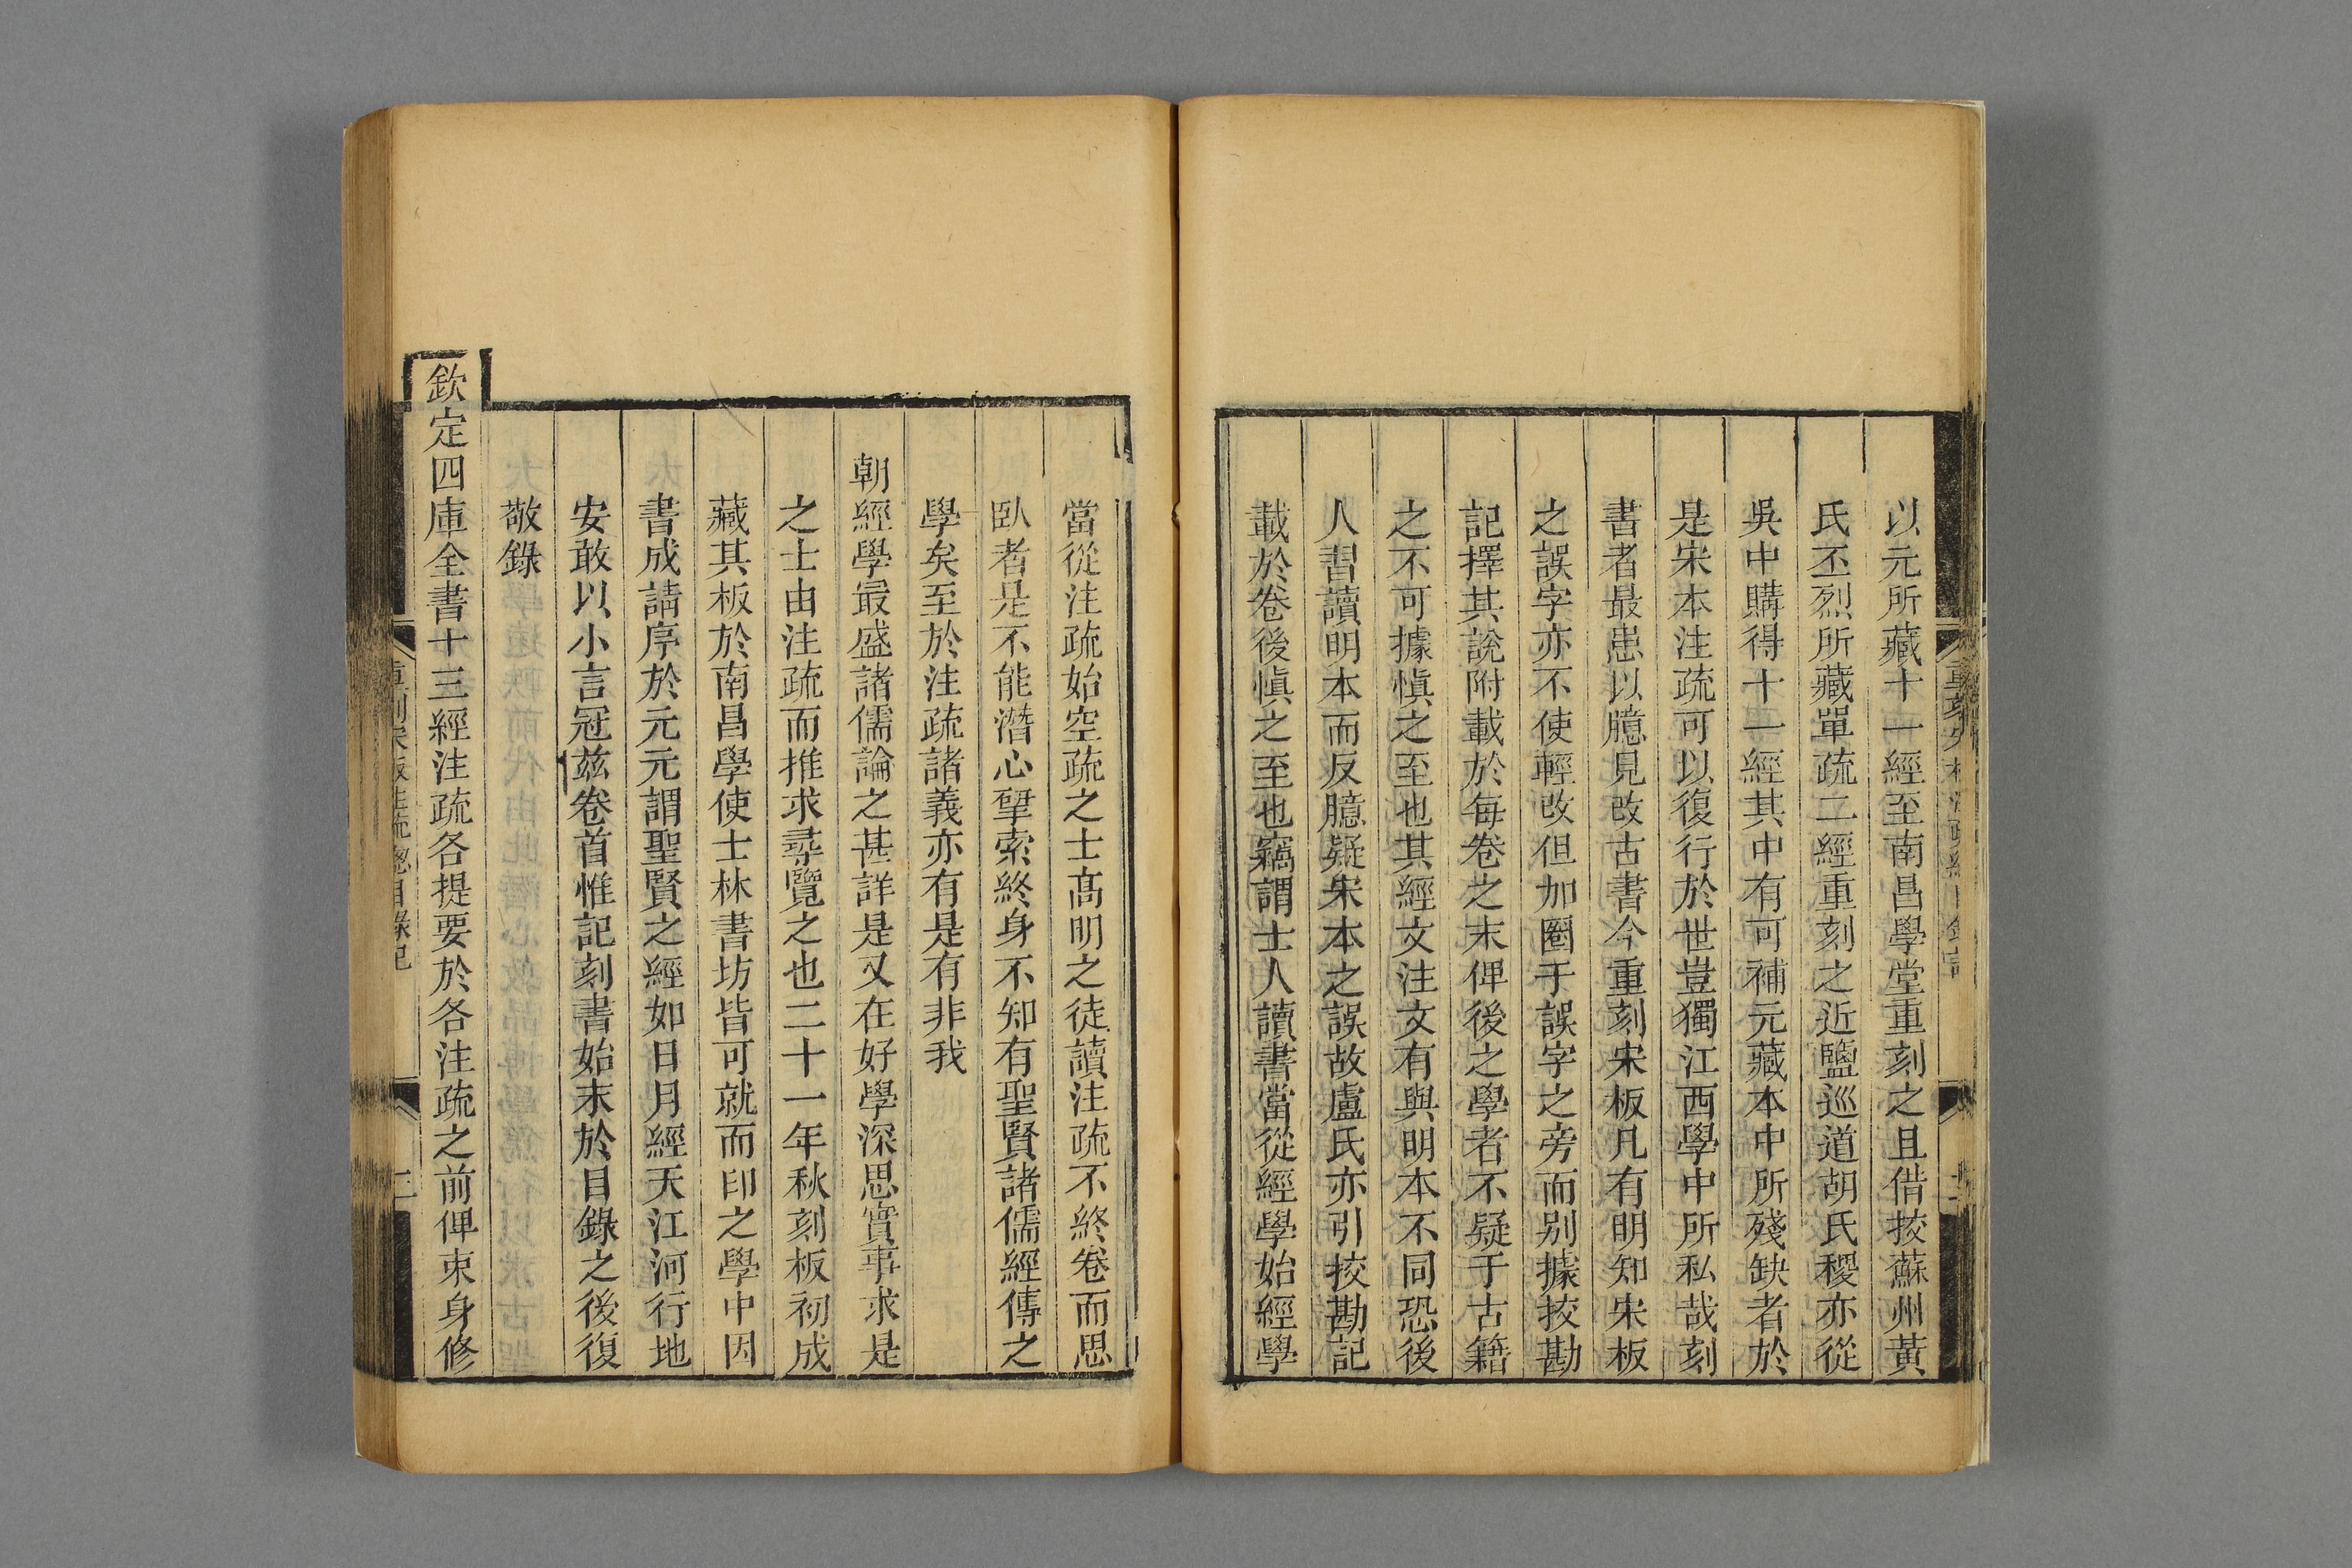 以元所藏十一經至南昌學堂重刻之且借挍蘇州黃
氏丕烈所藏單疏二經重刻之近鹽巡道胡氏稷亦從
吳中購得十一經其中有可補元藏本中所殘缺者於
是宋本注疏可以復行於世豈獨江西學中所私哉刻
書者最患以臆見改古書今重刻宋板凡有明知宋板
之誤字亦不使輕改但加圈于誤字之旁而別據挍勘
記擇其說附載於每卷之末俾後之學者不疑于古籍
之不可據愼之至也其經文注文有與明本不同恐後
人習讀明本而反臆疑宋本之誤故盧氏亦引挍勘記
載於卷後愼之至也竊謂士人讀書當從經學始經學
當從注疏始空疏之士髙明之徒讀注疏不終卷而思
臥者是不能潛心揅索終身不知有聖賢諸儒經傳之
學矣至於注疏諸義亦有是有非我
朝經學最盛諸儒論之甚詳是又在好學深思實事求是
之士由注疏而推求尋覽之也二十一年秋刻板初成
藏其板於南昌學使士林書坊皆可就而印之學中因
書成請序於元元謂聖賢之經如日月經天江河行地
安敢以小言冠茲卷首惟記刻書始末於目錄之後復
敬錄
欽定四庫全書十三經注疏各提要於各注疏之前俾束身修